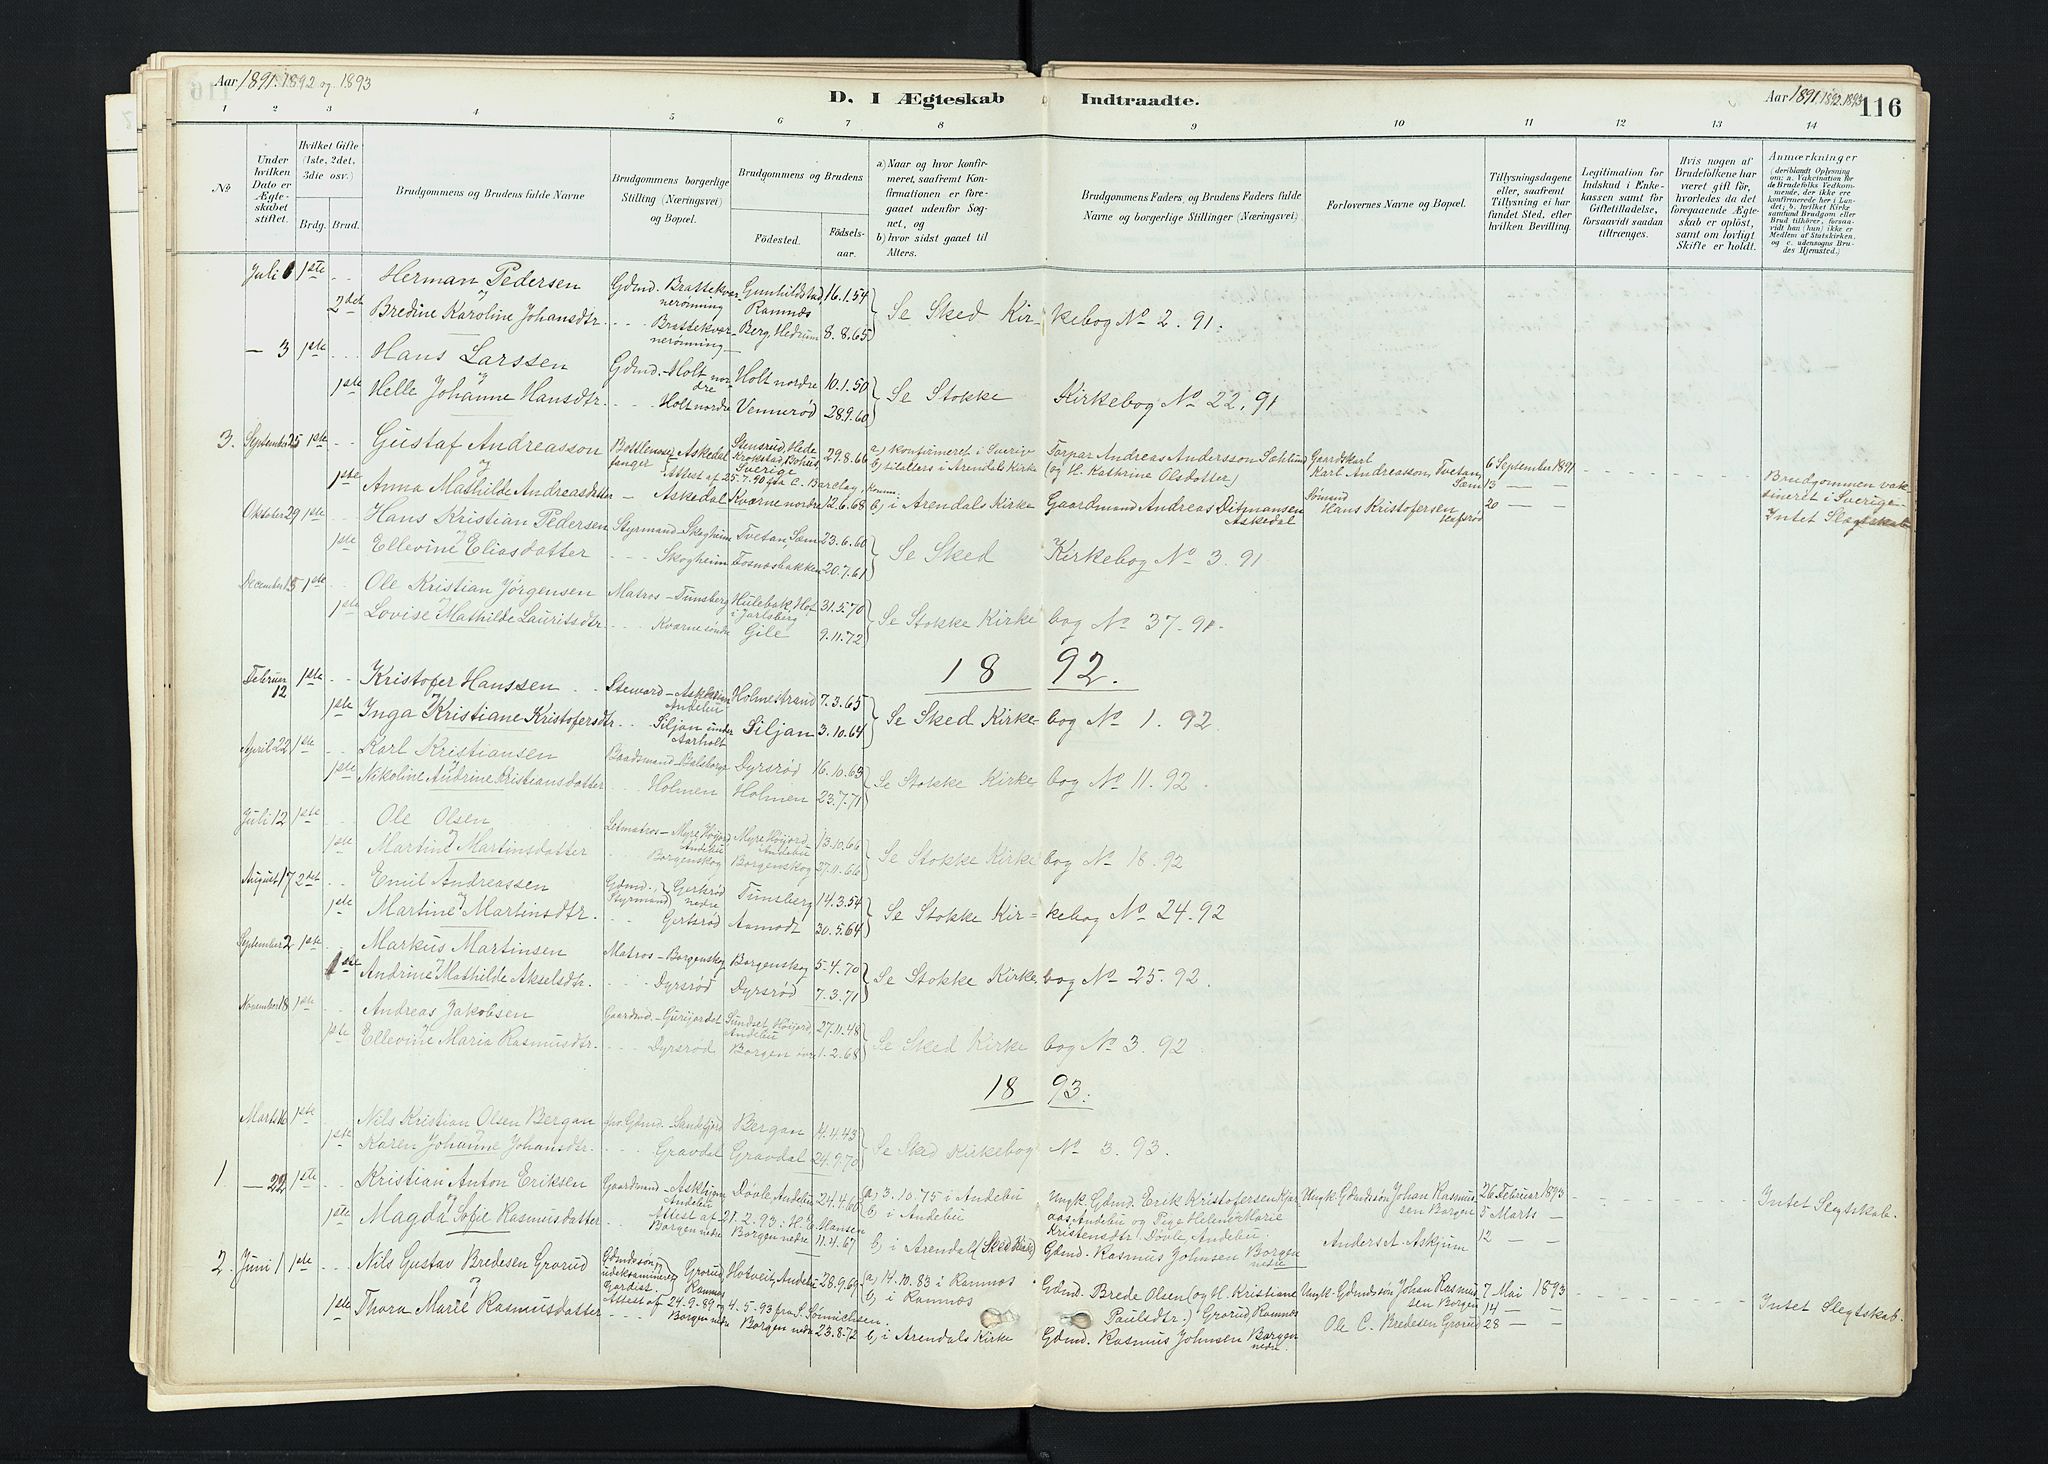 Aar 1891. 1892 og 1893
D. I Ægteskab Indtraadte.
Aar 1891. 1892. 1893
116
1 2 3 4 5 6 7 8 9 10 11 12 13 14
No
Under hvilken Dato er Ægteskabet stiftet.
Hvilket Gifte (1ste, 2det, 3die osv.)
Brdg. Brud.
Brudgommens og Brudens fulde Navne
Brudgommens borgerlige Stilling (Næringsvei) og Bopæl.
Brudgommens og Brudens
Fødested.
Fødselsaar.
a) Naar og hvor konfirmeret, saafremt Konfirmationen er foregaaet udenfor Sognet, og
b) hvor sidst gaaet til Alters.
Brudgommens Faders og Brudens Faders fulde Navne og borgerlige Stillinger (Næringsvei)
Forlovernes Navne og Bopæl.
Tillysningsdagene eller, saafremt Tillysning ei har fundet Sted, efter hvilken Bevilling.
Legitimation for Indskud i Enkekassen samt for Giftetilladelse, forsaavidt saadan tiltrænges.
Hvis nogen af Brudefolkene har været gift før, hvorledes da det foregaaende Ægteskab er opløst, samt om lovligt Skifte er holdt.
Anmærkninger (deriblandt Oplysning om: a. Vakcination for de Brudefolks Vedkommende, der ikke ere konfirmerede her i Landet; b. hvilket Kirkesamfund Brudgom eller Brud tilhører, forsaavidt han (hun) ikke er Medlem af Statskirken, og c. udensogns Brudes Hjemsted.
Juli 6 1ste Herman Pedersen Gdmd. Brattekvernerønning Gunhildstad Ramnæs 16.1.54
2det Bredine Karoline Johansdtr. Brattekvernerønning Berg, Hedrum 8.8.65 Se Sked Kirkebog No 2. 91.
— 3 1ste Hans Larssen Gdmd. - Holt nordre Holt nordre 10.1.50
1ste Helle Johanne Hansdtr. Holt nordre Vennerød 28.9.60 Se Stokke Kirkebog No 22. 91
3. September 25 1ste Gustaf Andreasson Bottlenosefanger Askedal Stensrud, Hede Krokstad, Bohus, Sverige 29.8.66 a) konfirmeret i Sverige b) titellers i Arendals Kirke Torpar Andreas Andersson (og H. Kathrine Olsdotter) Gaardskarl Karl Andreasson, Tvetan, Sæm 6 September 1891
Attest af 25.7.90 fra C. Barclay, Komm:
1ste Anna Mathilde Andreasdatter — Askedal Kværne nordre 12.6.68 b) i Arendals Kirke Gaardmand Andreas Ditmansen Askedal Sømand Hans Kristofersen 13 — — 20 — — Brudgommen vaksineret i Sverige. Intet Slegtskab
Oktober 29 1ste Hans Kristian Pedersen Styrmand - Skogheim Tvetan Sæm 23.6.60
1ste Ellevine Eliasdatter Skogheim Fosnæsbakken 20.7.61 Se Sked Kirkebog No 3. 91
December 15 1ste Ole Kristian Jørgensen Matros - Tunsberg Hulebak, Hof i Jarlsberg 31.5.70
1ste Lovise Mathilde Lauritsdtr. Kværne søndre Gile 9.11.72 Se Stokke Kirkebog No 37. 91.
1892.
Februar 12 1ste Kristofer Hanssen Steward - Andebu Holmestrand 7.3.65
1ste Inga Kristiane Kristofersdtr. Siljan under Aarholt Siljan 3.10.64 Se Sked Kirkebog No 1. 92
April 22 1ste Karl Kristiansen Baadsmand - Dyrsrød 16.10.63
1ste Nikoline Andrine Kristiansdatter Holmen Holmen 23.7.71 Se Stokke Kirkebog No 11. 92.
Juli 12 1ste Ole Olsen Letmatros - Myre Høijord Andebu Myre Høijord Andebu 13.10.66
1ste Martine Martinsdatter Borgenskog Borgenskog 27.11.66 Se Stokke Kirkebog No 18. 92
August 17 2det Emil Andreassen Gdmd., Styrmand Gertsrød nedre Tunsberg 14.3.54
1ste Martine Martinsdtr. Gertsrød Aamodt 30.5.64 Se Stokke Kirkebog No 24. 92
September 2 1ste Markus Martinsen Matros - Borgenskog Borgenskog 5.4.70
1ste Andrine Mathilde Akselsdtr. Dyrsrød Dyrsrød 7.3.71 Se Stokke Kirkebog No 25. 92.
November 18 1ste Andreas Jakobsen Gaardmd. - Gurijordet Sundset, Høijord, Andebu 27.11.48
1ste Ellevine Maria Rasmusdtr. Dyrsrød Borgen øvre 1.2.68 Se Sked Kirkebog No 3. 92
1893.
Marts 16 1ste Nils Kristian Olsen Bergan fhv. Gdmd. - Sandefjord Bergan 4.4.43
1ste Karen Johanne Johansdtr. Gravdal Gravdal 24.9.70 Se Sked Kirkebog No 3. 93.
1. — 22 1ste Kristian Anton Eriksen Gaardmand - Askhjem Andebu Døvle, Andebu 24.4.66 a) 3.10.75 i Andebu b) i Andebu Ungk. Gdmd. Erik Kristofersen Kjæraas, Andebu og Pige Helene Marie Kristensdtr. Døvle, Andebu. Ungk. Gdmdssøn Johan Rasmussen Borgen 26 Februar 1893 5 Marts — Intet Slegtskab.
Attest af 21.2.93: H. G. Hansen
1ste Magda Sofie Rasmusdatter Borgen nedre Borgen nedre 11.4.67 b) i Arendal (Sked Kirke) Gdmd. Rasmus Johnsen Borgen nedre Anders A. Askjum 12 — —
2. Juni 1 1ste Nils Gustav Bredesen Grorud Gdmdssøn, udeksamineret Jordist. Grorud Ramnæs Hotveit, Andebu 28.9.69 a) 14.10.83 i Ramnæs b) i Ramnæs Gdmd. Brede Olsen (og H. Kristiane Paulsdtr.) Grorud Ramnæs Ungk. Gdmdssøn Johan Rasmussen Borgen 7 Mai 1893 14 — — Intet Slegtskab.
Attest af 24.9.89 og 4.5.93 fra S. Sønnichsen.
1ste Thora Marie Rasmusdatter Borgen nedre Borgen nedre 23.8.72 b) i Arendals Kirke Gdmd. Rasmus Johnsen Borgen nedre. Ole C. Bredesen Grorud 28 — —